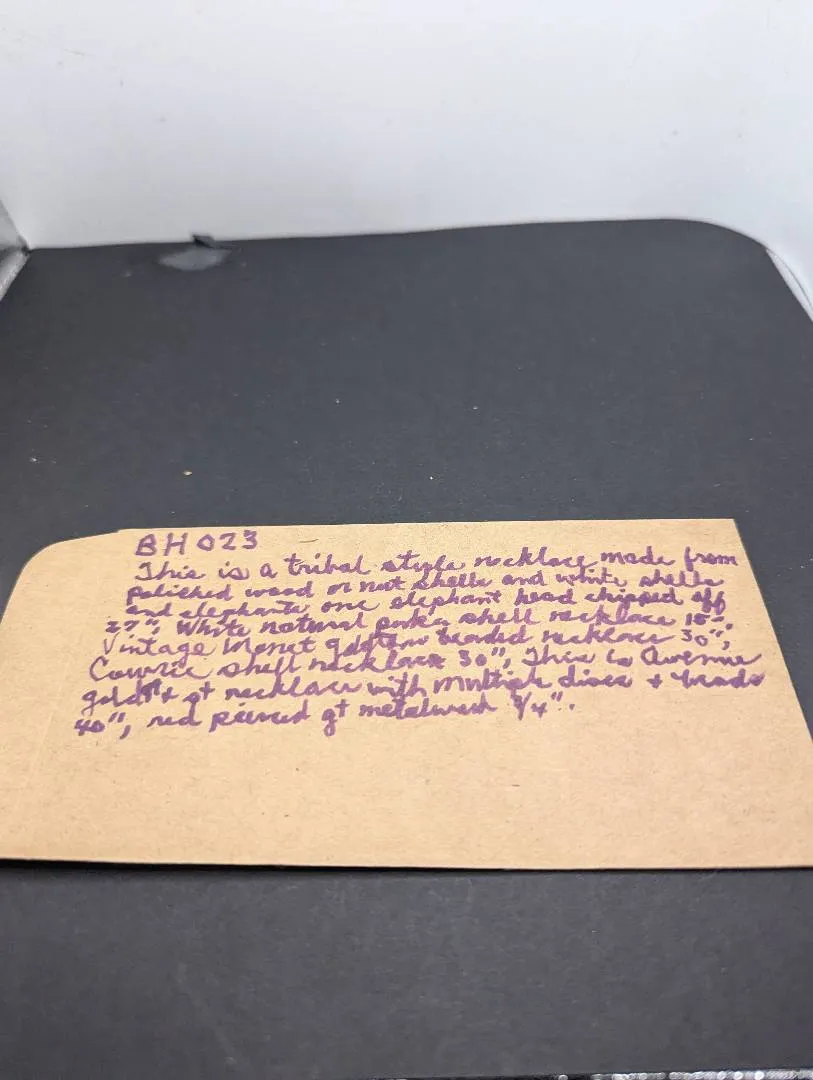 BH023
This is a tribal style necklace made from
polished wood or nut shells and white shells
and elephants one elephant head chipped off
27", White natural puka shell necklace 15",
Vintage Monet goldtone beaded necklace 30",
Cowrie shell necklace 30", This is Avenue
gt necklace with multiple discs + beads
40", red pierced gt metalwork 3/4".